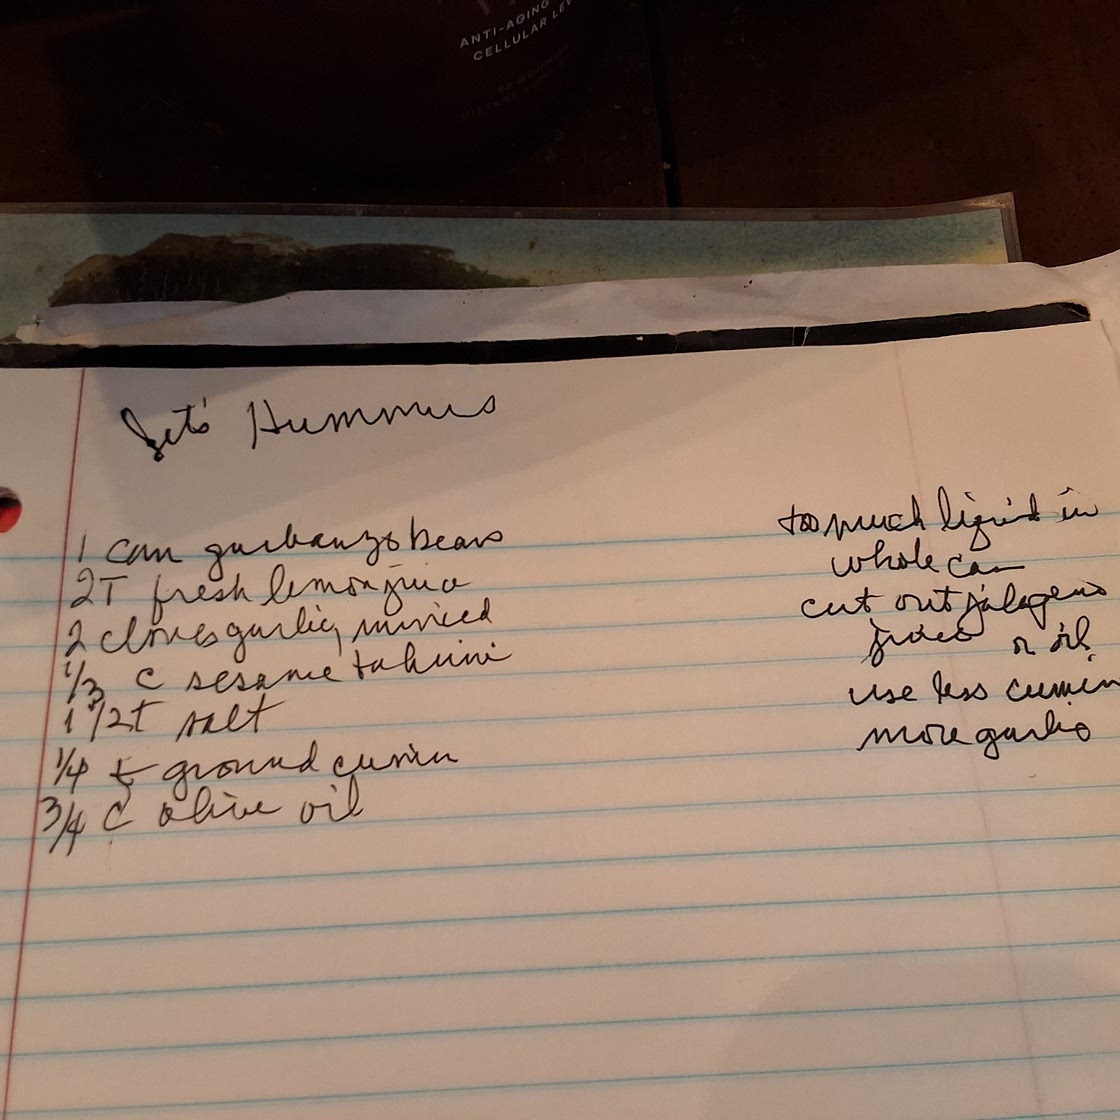 ANTI-AGING
CELLULAR LEV
Hummus
1 can garbanzo beans
2T fresh lemon juice
2 cloves garlic, minced
1/3 C sesame tahini
1 1/2t salt
1/4 t ground cumin
3/4 C olive oil
too much liquid in
whole can
cut out jalapeno
juice or oil
use less cumin
more garlic